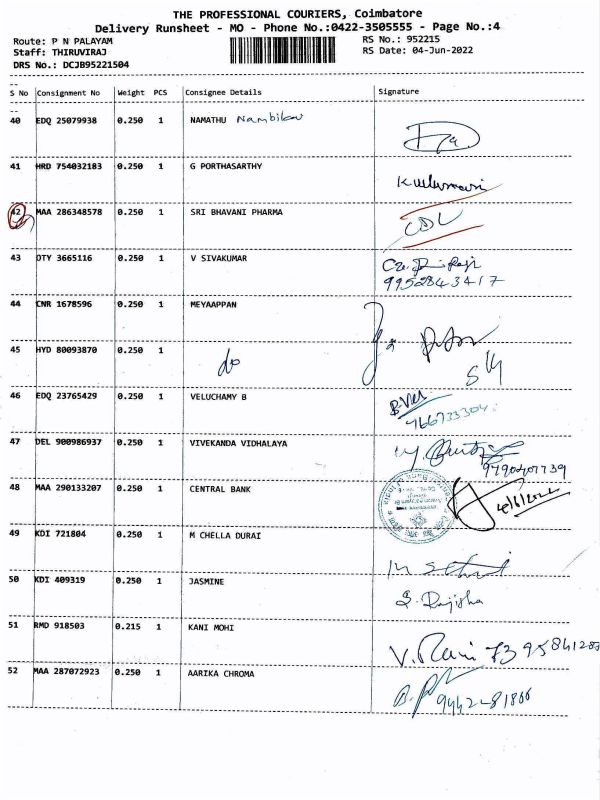 THE PROFESSIONAL COURIERS, Coimbatore
Delivery Runsheet - MO - Phone No.:0422-3505555 - Page No.:4
Route: P N PALAYAM RS No.: 952215
Staff: THIRUVIRAJ RS Date: 04-Jun-2022
DRS No.: DCJB95221504
S No Consignment No Weight PCS Consignee Details Signature
40 EDQ 25079938 0.250 1 NAMATHU
41 HRD 754032183 0.250 1 G PORTHASARTHY
42 MAA 286348578 0.250 1 SRI BHAVANI PHARMA
43 OTY 3665116 0.250 1 V SIVAKUMAR
9952843417
44 CNR 1678596 0.250 1 MEYAAPPAN
45 HYD 80093870 0.250 1 do
46 EDQ 23765429 0.250 1 VELUCHAMY B
47 DEL 900986937 0.250 1 VIVEKANDA VIDHALAYA
48 MAA 290133207 0.250 1 CENTRAL BANK
49 KDI 721804 0.250 1 M CHELLA DURAI
50 KDI 409319 0.250 1 JASMINE
51 RMD 918503 0.215 1 KANI MOHI
52 MAA 287072923 0.250 1 AARIKA CHROMA